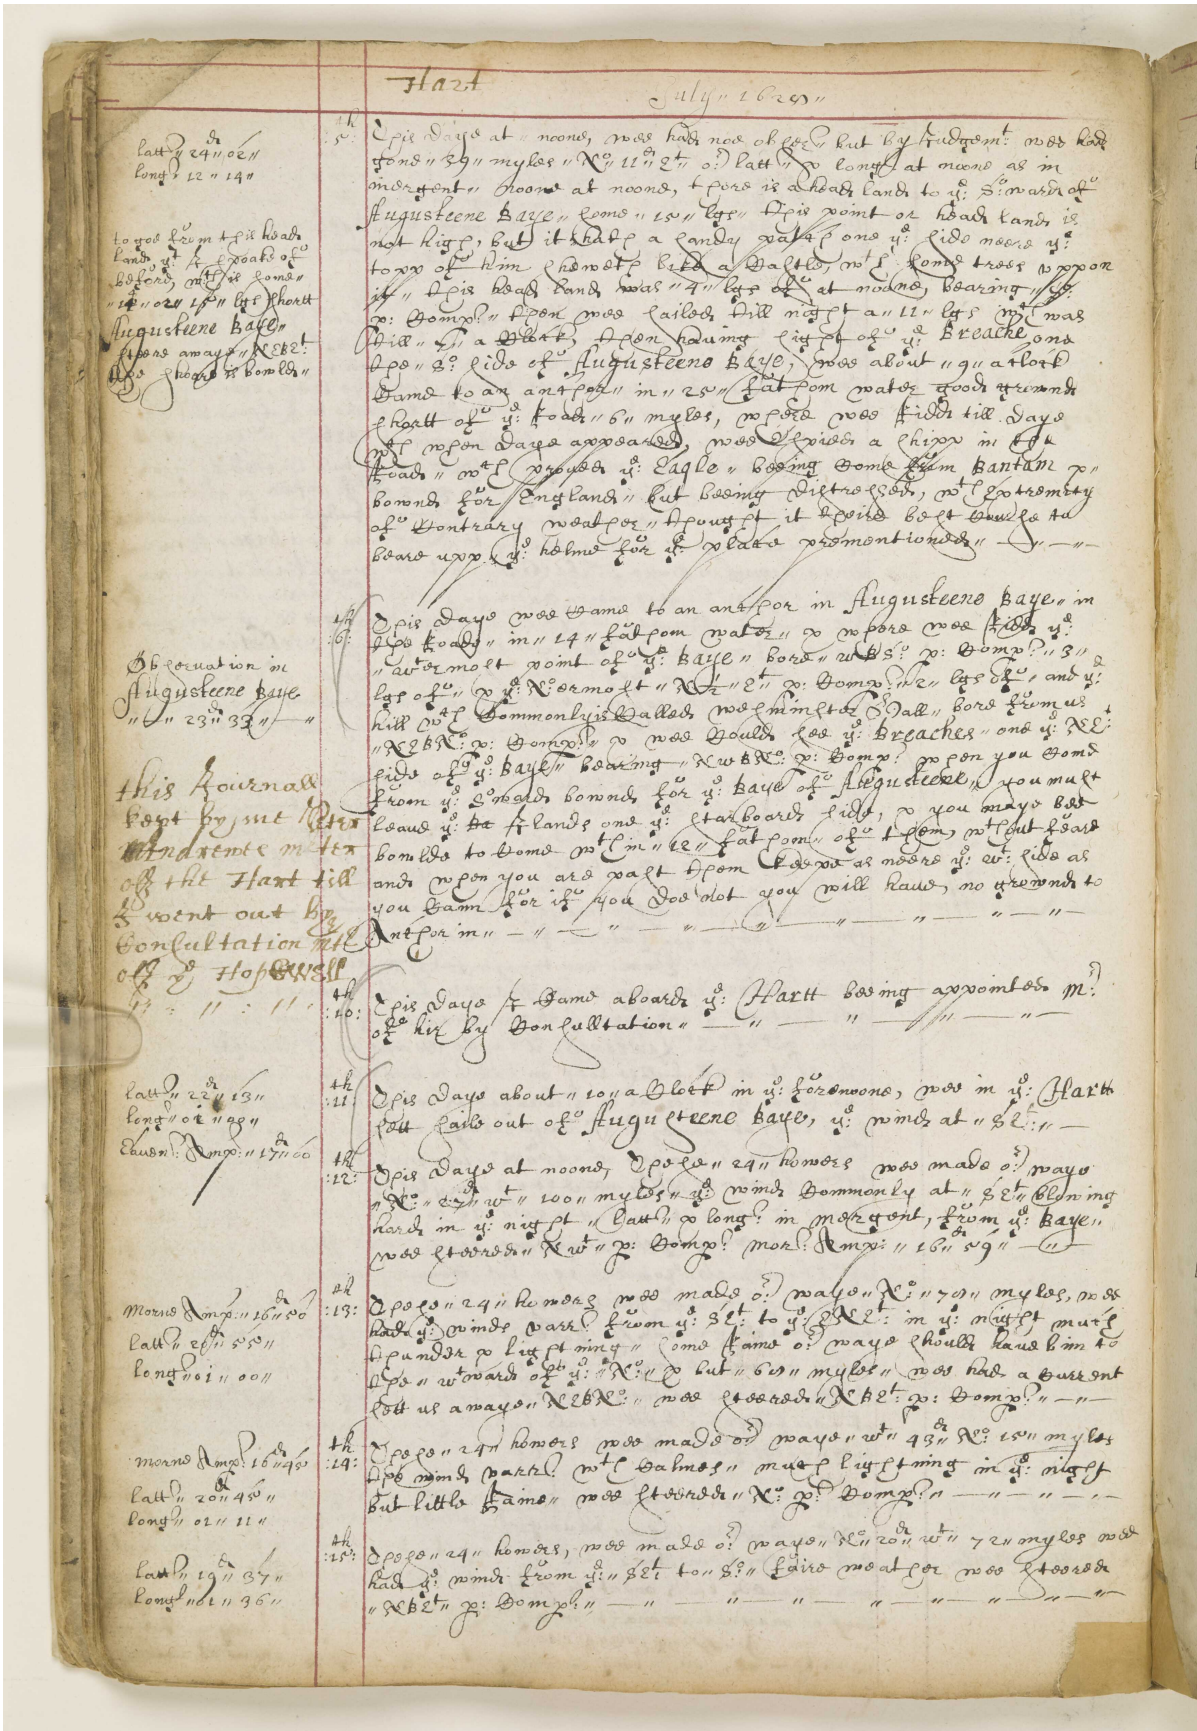 Hart
July " 1628 "
latt? " 24 " 02 "
long? 12 " 14 "
5th This daye at " noone, wee had noe obser? but by Judgemt wee had
gone " 39 " myles " No: 11d Et or latt? & long? at noone as in
mergent " noone at noone, there is a head land to ye: So:ward of
Augusteene Baye " some " 15 " lgs " this point or head land is
not high, but it hath a sandy patch one ye: side neere ye:
topp of him sheweth like a Castle, wth some trees uppon
it " this head land was " 4 " lgs of at noone, bearing " ye:
p: Comp? " then wee sailed till night a " 11 " lgs wch was
till a Clock, then having sight of ye: Breache one
the " So: side of Augusteene Baye, wee about " 9 " a clock
Came to an anchor " in " 25 " fathom water good grownd
shortt of ye: Road " 6 " myles, where wee Ridd till daye
wch when daye appeared, wee Espied a shipp in the
Road " wch proved ye: Eagle " beeing Come from Bantam &
bownd for England " but beeing distressed, wth Extremity
of Contrary weather " thought it theire best Course to
beare upp ye: helme for ye: place prementioned "
to goe from this head
land yt I spoake of
before, wch is some "
" 14 " or " 15 " lgs shortt
Augusteene Baye "
there awaye " NEBEt:
the shoare is bowld "
6th This daye wee Came to an anchor in Augusteene Baye " in
the Road " in " 14 " fathom water " & where wee Ridd ye:
" wtermost point of ye: Baye " bore " wBSo: p: Comp? " 3 "
lgs of " & ye: No:ermost " N 1/2 " Et p: Comp? " 2 " lgs of " and ye:
hill wch Commonly is Called wesminster Hall " bore from us
" NEBNo: p: Comp? " & wee Could see ye: Breaches " one ye: NEt
side of ye: Baye " bearing " NwBNo: p: Comp? when you Come
from ye: So:ward bownd for ye: Baye of Augusteene, you must
leave ye: Ilands one ye: starboard side, & you maye bee
bowlde to Come wthin " 12 " fathom " of them, wthout feare
and when you are past them keepe as neere ye: wt: side as
you Cann for if you doe not you will have, no grownd to
Anchor in "
Observation in
Augusteene Baye
" 23d 33 "
this Journall
kept by me Peter
Andrewes mster
off the Hart till
I went out by
Consultation mstr
off ye Hopewell
10th: This daye I Came aboard ye: Hartt beeing appointed Mr:
of hir by Consulltation "
latt? " 22d " 13 "
long? " 01 " 90 "
11th This daye about " 10 " a Clock in ye: forenoone, wee in ye: Hartt
sett saile out of Augusteene Baye, ye: wind at " SEt: "
Eaven: Amp: " 17d " 00
12th: This daye at noone, These " 24 " howers wee made or waye
" No: " 27d wt " 100 " myles " ye: wind Commonly at " SEt " blowing
hard in ye: night " latt? & long? in mergent, from ye: Baye "
wee steered " Nwt " p: Comp? mor: Amp: " 16d " 59 "
Morne Amp: " 16d " 50
latt? " 20d " 55 "
long? " 01 " 00 "
13th: These " 24 " howers wee made or waye " No: " 78 " myles, wee
had ye: winds varr? from ye: SEt: to ye: ENEt: in ye: night much
thunder & lightning " some Raine or waye should have binn to
the " wtward of ye: " No: " & but " 68 " myles " wee had a Current
sett us awaye " NEBNo: " wee steered " NBEt: p: Comp? "
Morne Amp? 16d " 45
latt? " 20d " 45 "
long? " 01 " 11 "
14th: These " 24 " howers wee made or waye " wt " 43d " No: 15 " myles
the wind varr? wth Calmes " much lightning in ye: night
but little Raine " wee steered " No: p: Comp? "
latt? " 19d " 37 "
long? " 01 " 36 "
15th: These " 24 " howers, wee made or waye " No: " 20d " wt " 72 " myles wee
had ye: wind from ye: " SEt: to " So: " faire weather wee steered
" NBEt " p: Comp: "